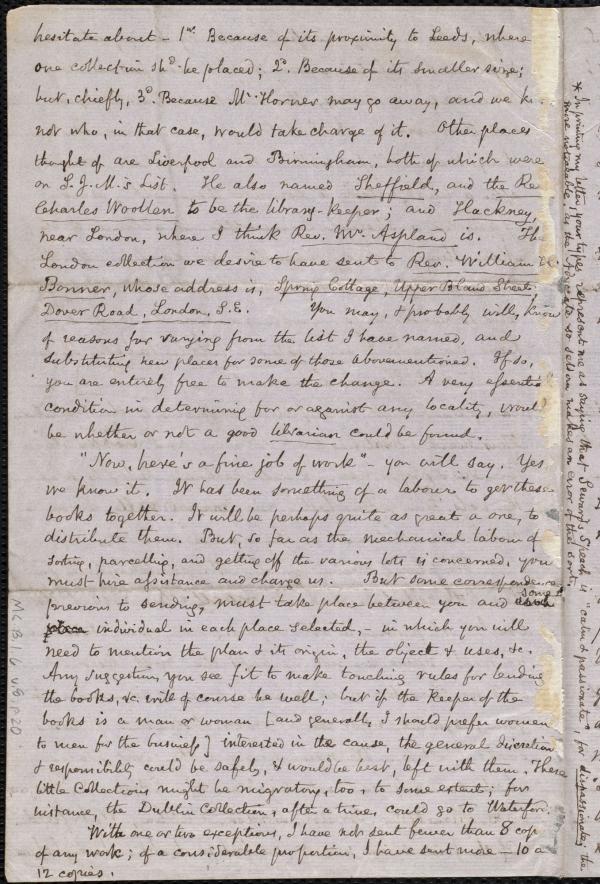 hesitate about - 1st. Because of its proximity to Leeds, where
one collection shd. be placed; 2d. Because of its smaller size;
but, chiefly, 3d. Because Mr. Horner may go away, and we k
not who, in that case, would take charge of it. Other places
thought of are Liverpool and Birmingham, both of which were
on S. J. M.'s List. He also named Sheffield, and the Re
Charles Woollen to be the library-keeper; and Hackney,
near London, where I think Rev. Mr. Aspland is. Th
London collection we desire to have sent to Rev. William H.
Bonner, whose address is, Spring Cottage, Upper Bland Street,
Dover Road, London, S.E. You may, & probably will, know
of reasons for varying from the list I have named, and
substituting new places for some of those abovementioned. If so,
you are entirely free to make the change. A very essential
condition in determining for or against any locality, would
be whether or not a good librarian could be found.
"Now, here's a fine job of work" - you will say. Yes
we know it. It has been something of a labour to get these
books together. It will be perhaps quite as great a one, to
distribute them. But, so far as the mechanical labour of
sorting, parcelling, and getting off the various lots is concerned, you
must hire assistance and charge us. But some correspondence
previous to sending, must take place between you and some
individual in each place selected, - in which you will
need to mention the plan & its origin, the object & uses, &c.
Any suggestion, you see fit to make touching rules for lending
the books, &c. will of course be well; but if the keeper of the
books is a man or woman [and generally, I should prefer women
to men for the business] interested in the cause, the general discretion
& responsibility could be safely, & would be best, left with them. These
little Collections might be migratory, too, to some extent; for
instance, the Dublin Collection, after a time, could go to Waterford.
With one or two exceptions, I have not sent fewer than 8 cop
of any work; of a considerable proportion, I have sent more - 10 a
12 copies.
* In printing my letter, your types represent me as saying that Seward's Speech is "calm & passionate", for dispassionate; the
more noticeable, as the Advocate so seldom makes an error of the sort.